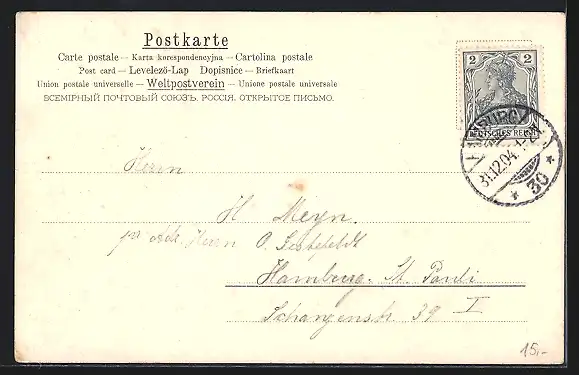 Postkarte
Carte postale – Karta korespondencyjna – Cartolina postale
Post card – Levelező-Lap Dopisnice – Briefkaart
Union postale universelle – Weltpostverein – Unione postale universale
ВСЕМІРНЫЙ ПОЧТОВЫЙ СОЮЗЪ. РОССІЯ. ОТКРЫТОЕ ПИСЬМО.
2 2
DEUTSCHES REICH
HAMBURG
31.12.04. 1-2N
* 30 *
Herrn
H Meyn
pr Adr. Herrn O.
Hamburg. St Pauli
Schanzenstr 39 I
15,-